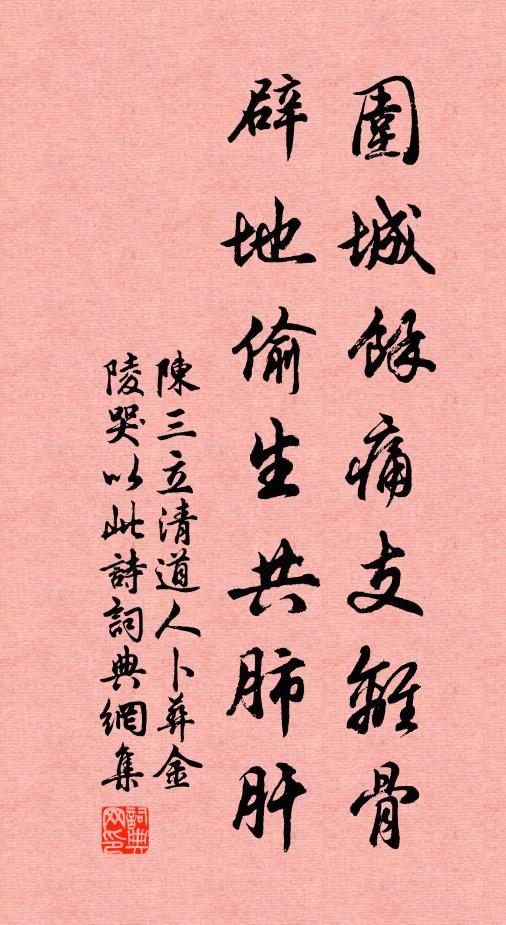 圍城餘痛支離骨
辟地偷生共肺肝
陳三立清道人卜葬金
陵哭以此詩詞典網集
詞典网印